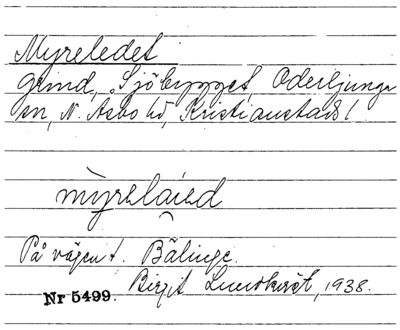 Myreledet
grind, Sjöbygget, Oderljunga
sn, N. Åsbo hd, Kristianstads l
På vägen t. Bälinge.
Birgit Lundkvist, 1938.
Nr 5499.